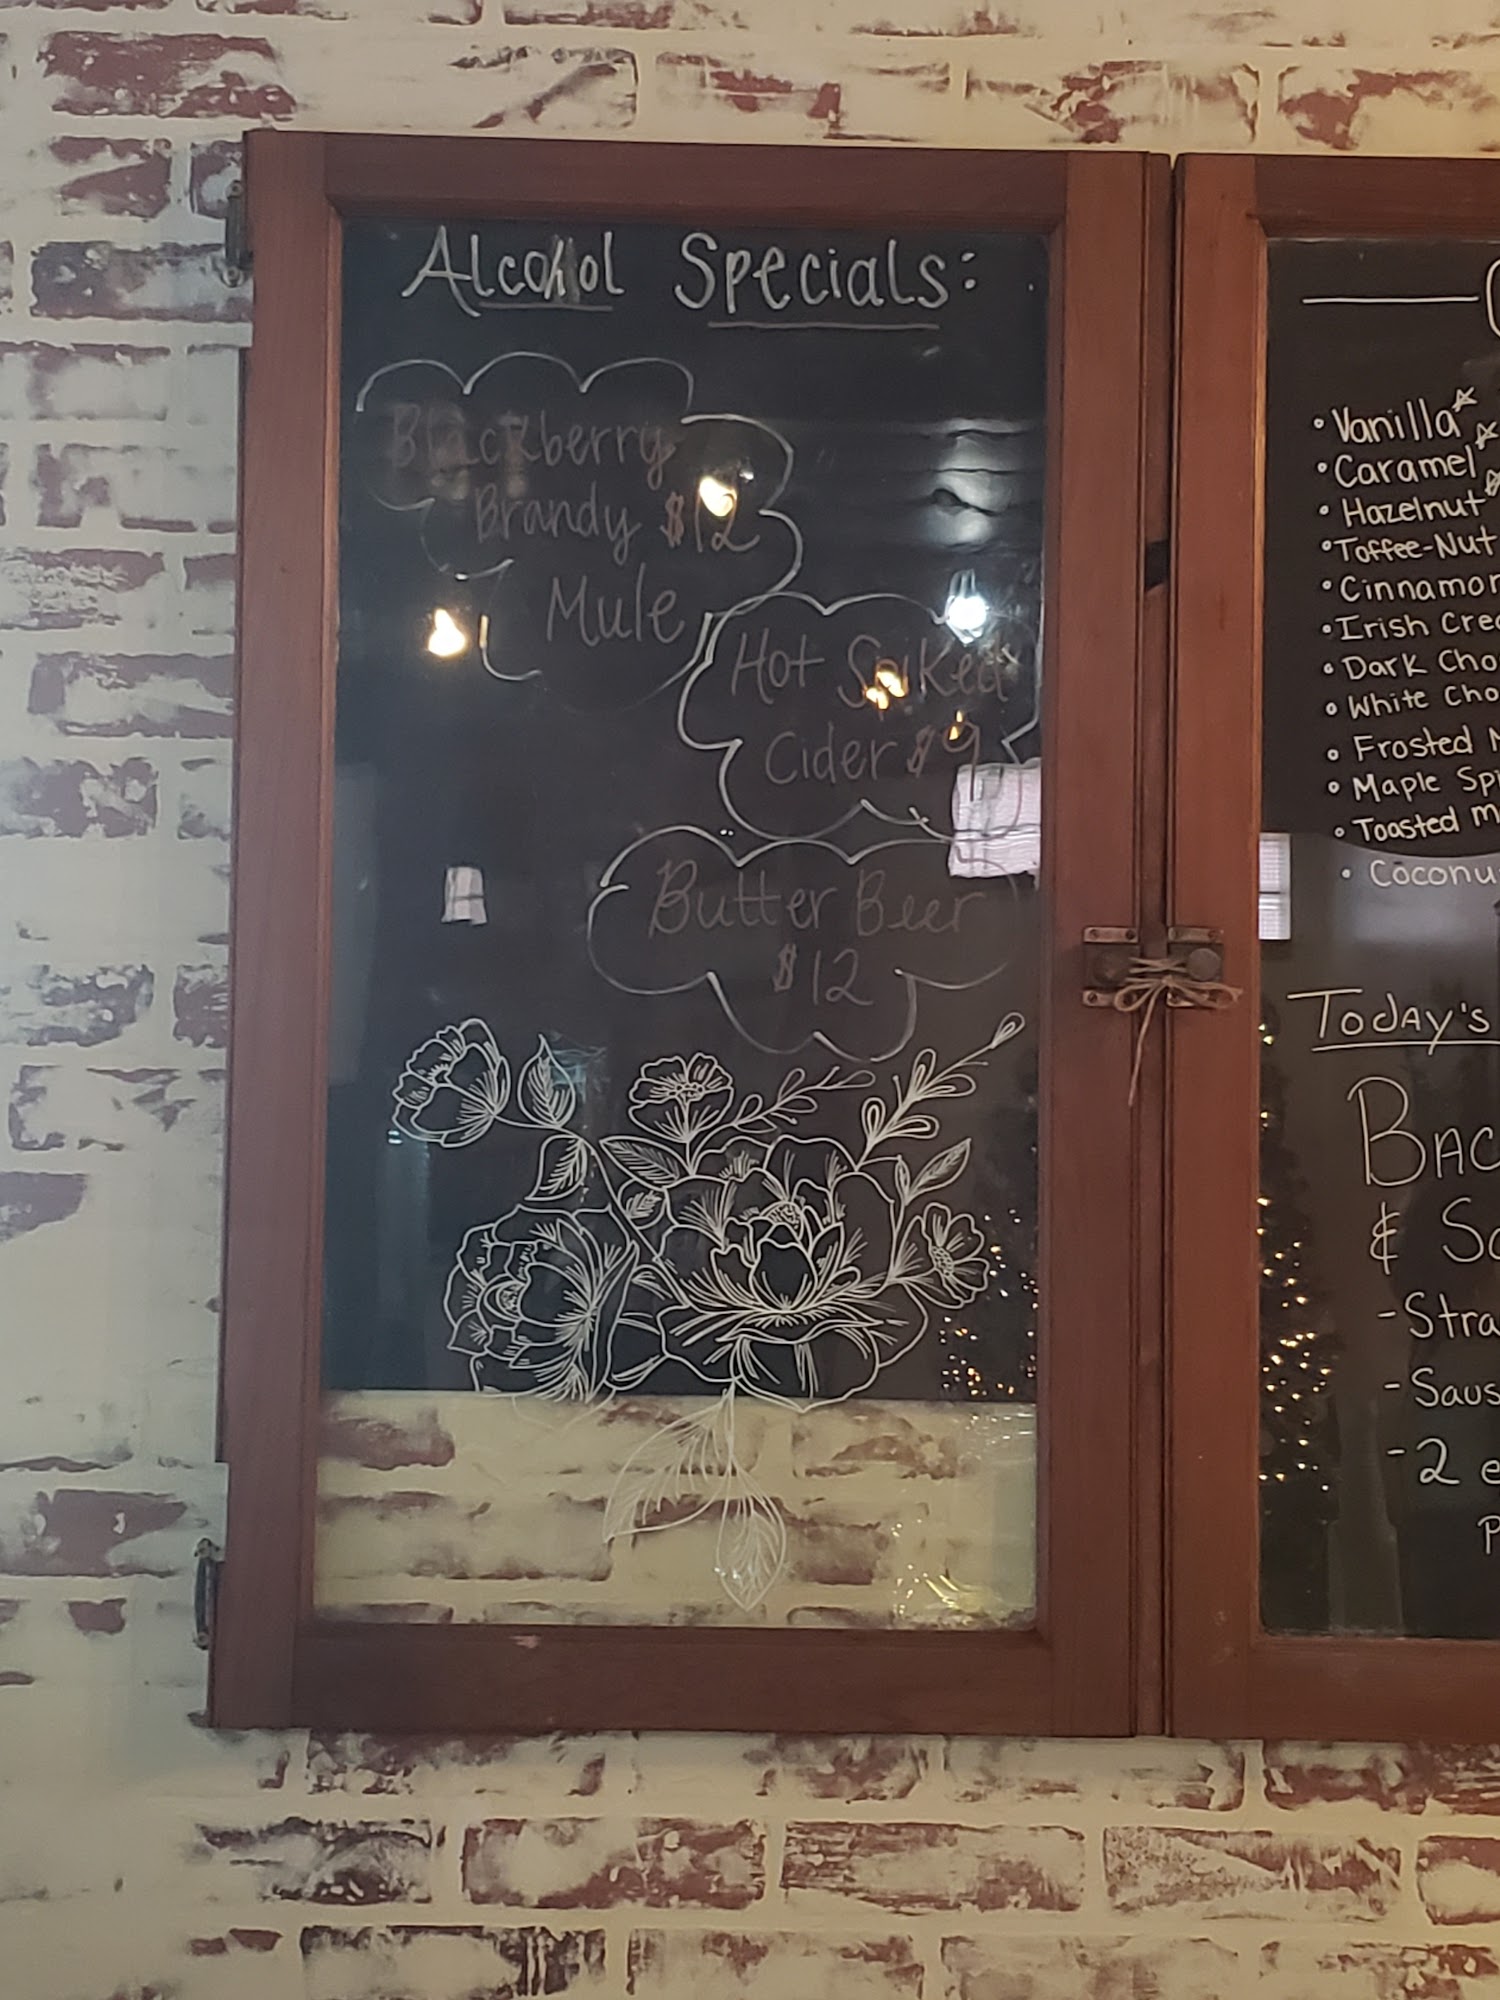 Alcohol Specials:
Blackberry
Brandy $12
Mule
Hot Spiked
Cider $9
Butter Beer
$12
• Vanilla
• Caramel
• Hazelnut
• Toffee-Nut
• Cinnamon
• Irish Cre
• Dark Cho
• White Cho
• Frosted
• Maple Sp
• Toasted M
• Coconu
Today's
Bac
& S
- Stra
- Saus
- 2 e
P